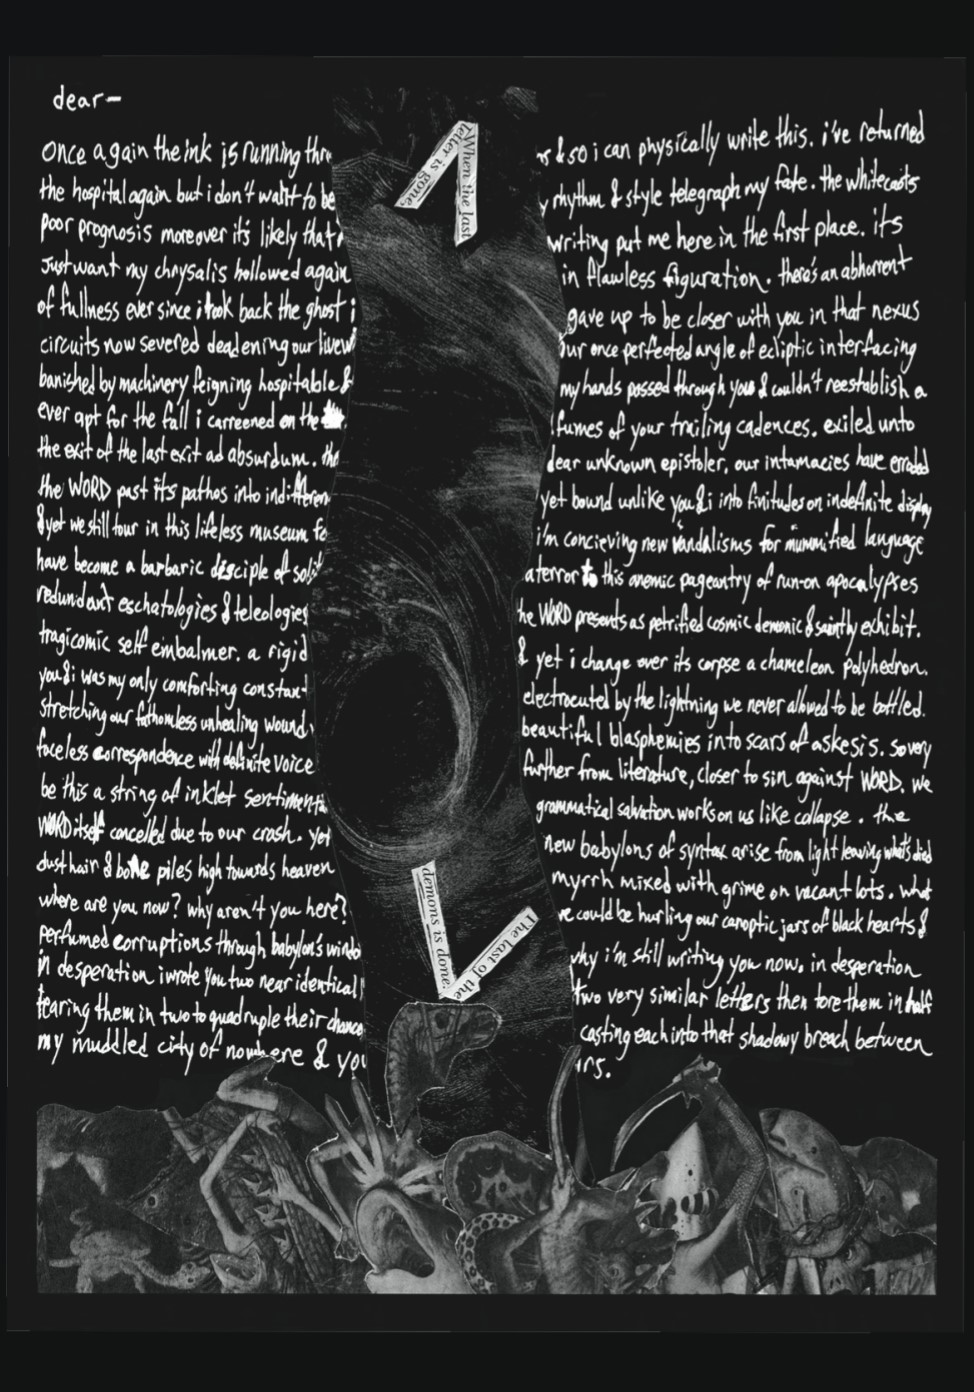 dear—
once again the ink is running thr s & so i can physically write this. i've returned
the hospital again but i don't want to be rhythm & style telegraph my fate. the whitecoats
poor prognosis moreover it's likely that writing put me here in the first place. it's
just want my chrysalis hollowed again in flawless figuration. there's an abhorrent
of fullness ever since i took back the ghost i gave up to be closer with you in that nexus
circuits now severed deadening our livew our once perfected angle of ecliptic interfacing
banished by machinery feigning hospitable & my hands passed through you & couldn't reestablish a
ever apt for the fall i carreened on the fumes of your trailing cadences. exiled unto
the exit of the last exit ad absurdum. the dear unknown epistoler, our intamacies have eroded
the WORD past its pathos into indifferen yet bound unlike you & i into finitudes on indefinite display
& yet we still tour in this lifeless museum fo i'm concieving new vandalisms for mummified language
have become a barbaric disciple of soli a terror to this anemic pageantry of run-on apocalypses
redundant eschatologies & teleologies he WORD presents as petrified cosmic demonic & saintly exhibit.
tragicomic self embalmer. a rigid & yet i change over its corpse a chameleon polyhedron.
you & i was my only comforting constant electrocuted by the lightning we never allowed to be bottled.
stretching our fathomless unhealing wound beautiful blasphemies into scars of askesis. so very
faceless correspondence with definite voice further from literature, closer to sin against WORD. we
be this a string of inklet sentimenta grammatical salvation works on us like collapse. the
WORD itself cancelled due to our crash. yo new babylons of syntax arise from light leaving what's died
dust hair & bone piles high towards heaven myrrh mixed with grime on vacant lots. what
where are you now? why aren't you here? we could be hurling our canoptic jars of black hearts &
perfumed corruptions through babylon's windo why i'm still writing you now. in desperation
in desperation i wrote you two near identical two very similar letters then tore them in half
tearing them in two to quadruple their chance casting each into that shadowy breach between
my muddled city of nowhere & you rs.
When the last
letter is gone.
The last of the
demons is done.